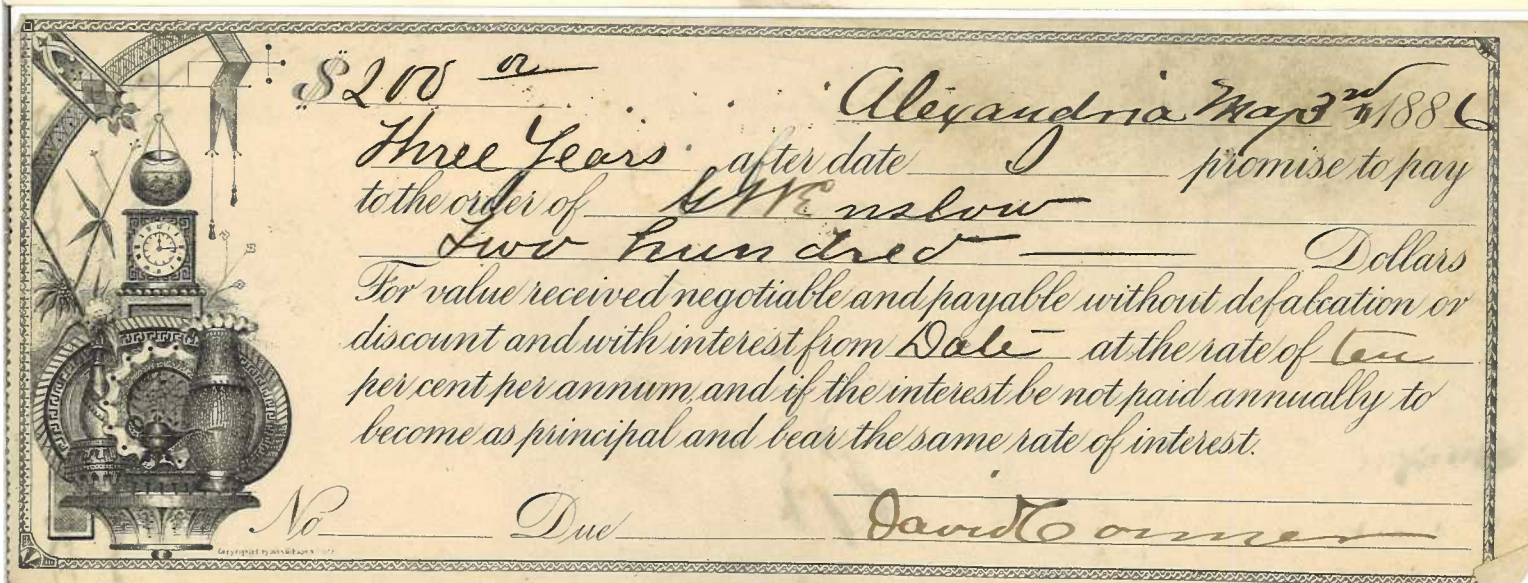 $200 00 Alexandria May 3rd 1886
Three Years after date I promise to pay
to the order of G W Enslow
Two hundred Dollars
For value received negotiable and payable without defalcation or
discount and with interest from Date at the rate of ten
per cent per annum, and if the interest be not paid annually to
become as principal and bear the same rate of interest.
No Due David Conner